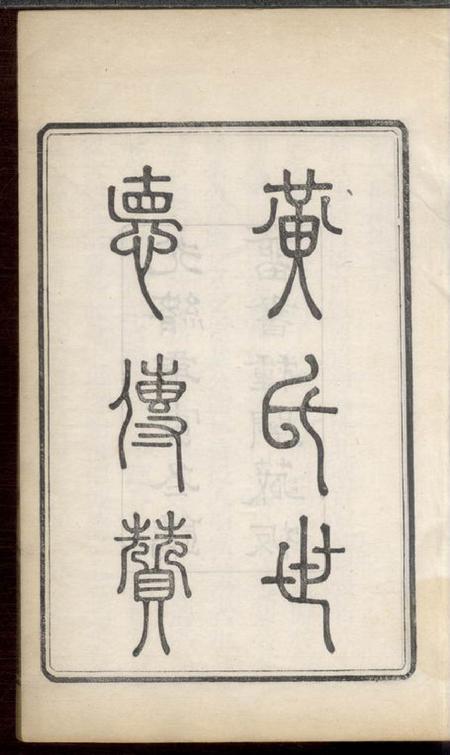 黃氏世
悳傳贊